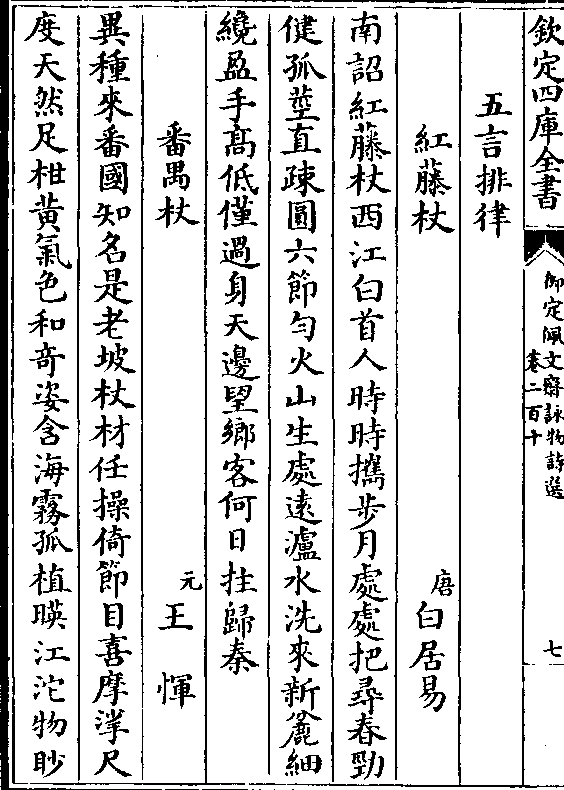 欽定四庫全書
御定佩文齋詠物詩選
卷二百十
七
五言排律
紅藤杖 唐 白居易
南詔紅藤杖西江白首人時時攜步月處處把尋春勁
健孤莖直疎圓六節勻火山生處遠瀘水洗來新麄細
纔盈手高低僅過身天邊望鄉客何日拄歸秦
番禺杖 元 王惲
異種來番國知名是老坡杖材任操倚節目喜摩挲尺
度天然足柑黃氣色和竒姿含海霧孤植暎江沱物眇